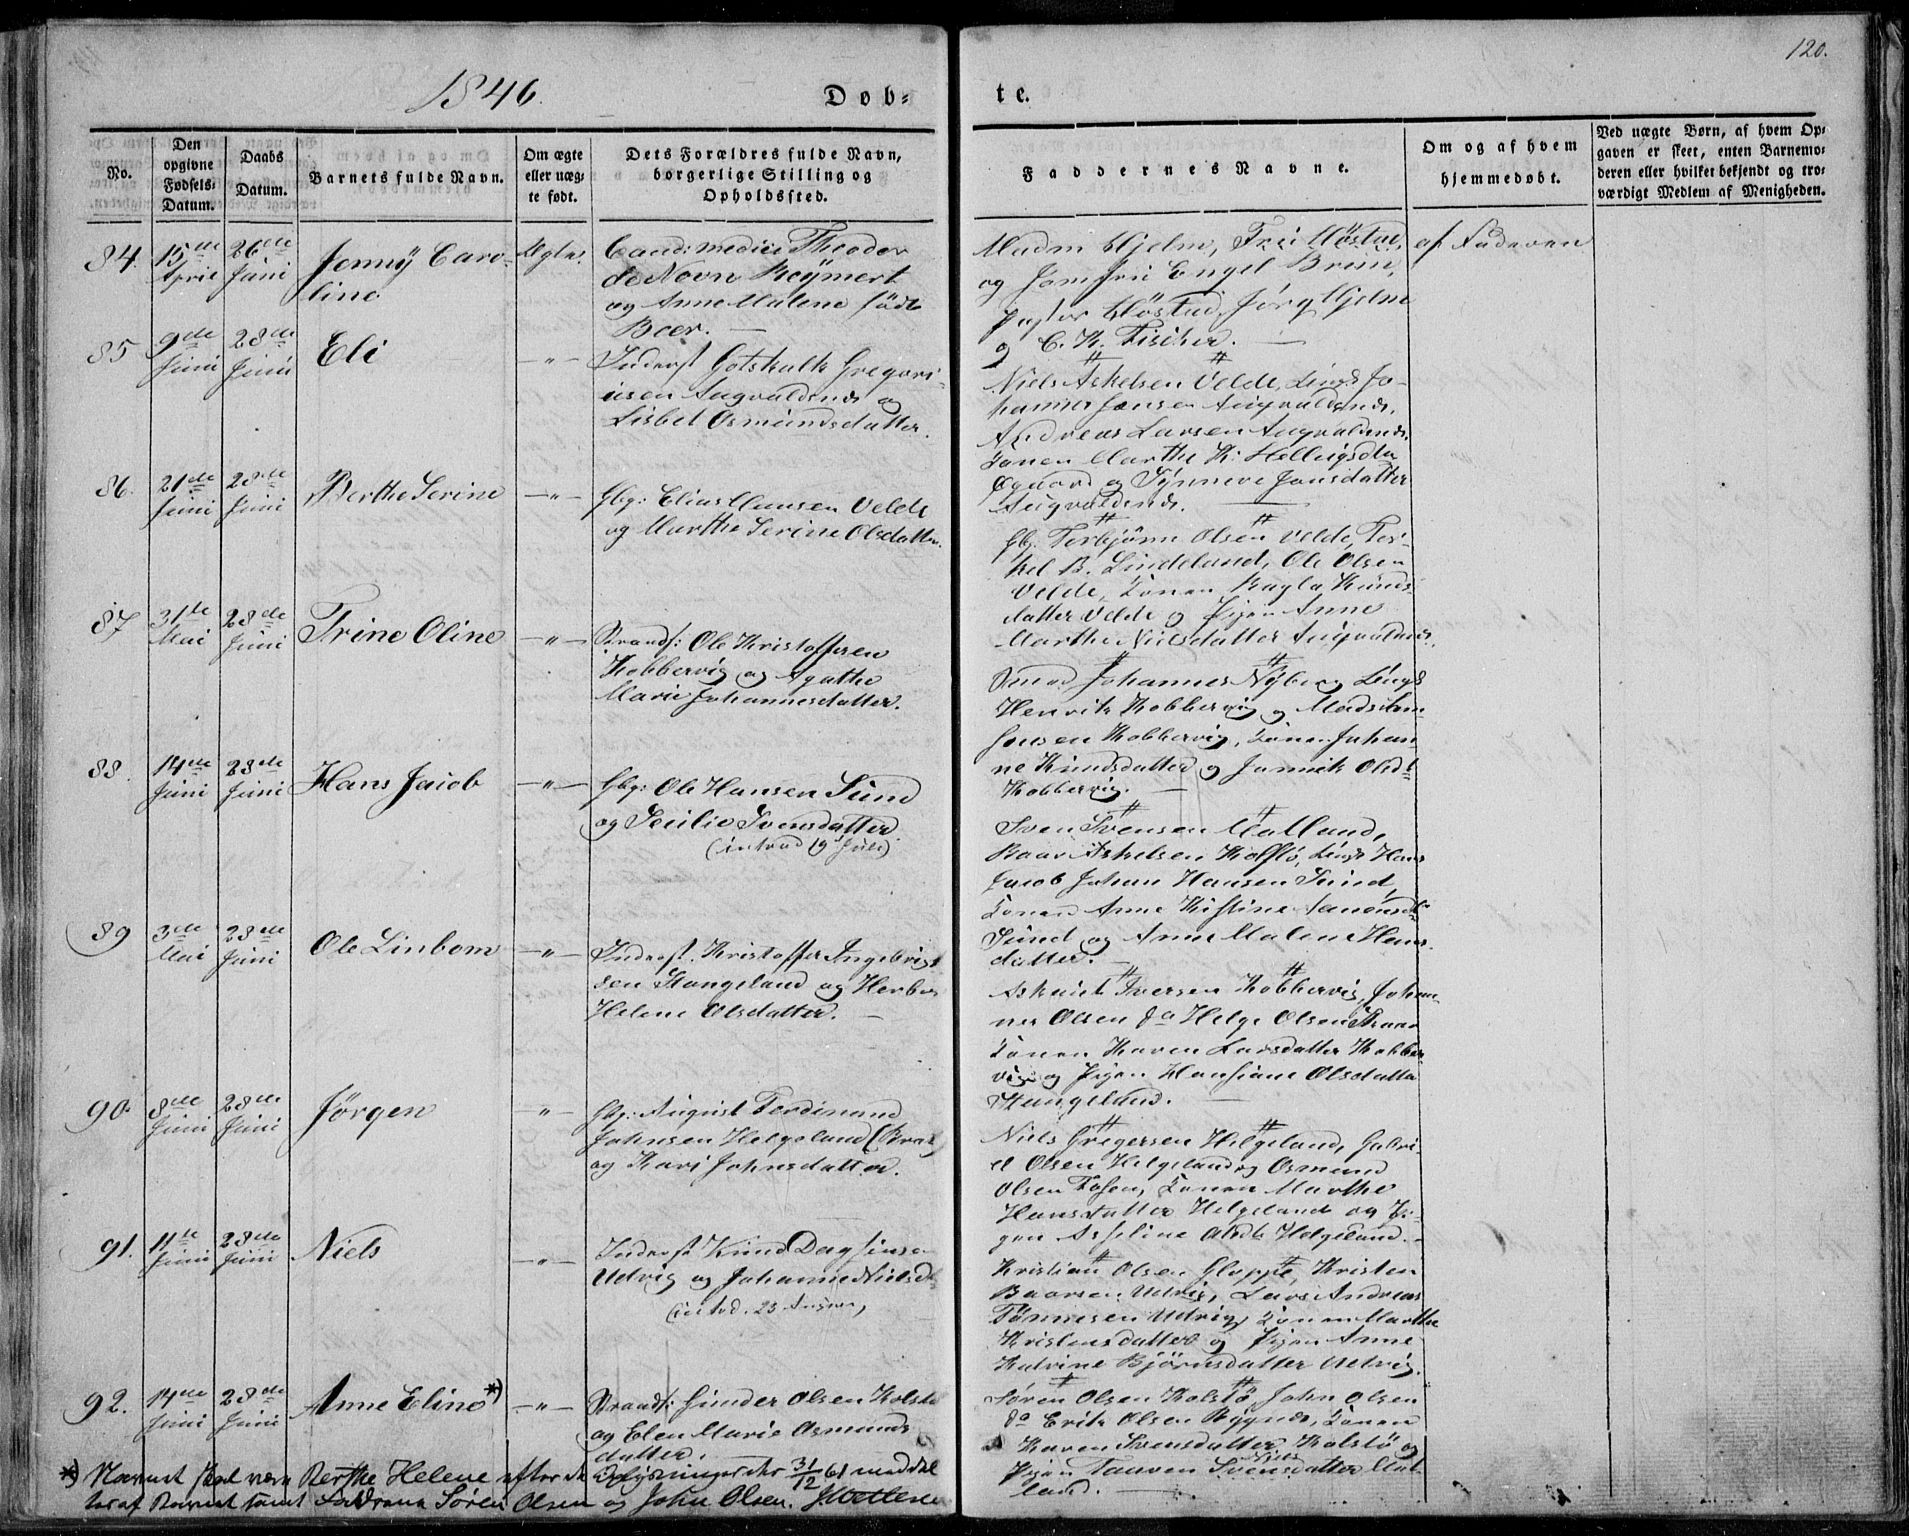 1846.
Døb-
te.
120.
No.
Den opgivne Fødsels-Datum.
Daabs Datum.
Barnets fulde Navn.
Om ægte eller uægte født.
Dets Forældres fulde Navn, borgerlige Stilling og Opholdssted.
Faddernes Navne.
Om og af hvem hjemmedøbt.
Ved uægte Børn, af hvem Op-
gaven er skeet, enten Barnemo-
deren eller hvilket bekjendt og tro-
værdigt Medlem af Menigheden.
84. 15de April 26de Juni Jenny Caro-
line
Ægte.
Cand: medici Theodor
de Novn Reymert
og Anne Malene født
Boer.
Madm Hjelm, Fru Høstad,
og Jomfru Engel Brun,
Pastor Høstad, Jørg Hjelm
og C. K. Fischer.
af Faderen
85 9de Juni 28de Juni Eli
-"-
Inderst Gotskalk Gregori-
usen Augvaldsnæs og
Lisbet Osmundsdatter.
Niels Askelsen Velde, Ungk Jo-
hannes Jansen Augvaldsnæs,
Andreas Larsen Augvaldsnæs,
Konen Marthe K: Helliugsdtr
og Synneve Jansdatter
Augvaldsnæs.
86. 21de Juni 28de Juni Berthe Serine
-"-
Gbr: Elias Hansen Velde
og Marthe Serine Olsdatter.
Gbr. Torbjørn Olsen Velde, Tor-
kel B. Lindeland, Ole Olsen
Velde, Konen Bagla Knuds-
datter Velde og Pigen Anne
Marthe Nielsdatter Augvaldsnæs.
87 31te Mai 28de Juni Trine Oline
-"-
Strands: Ole Kristoffersen
Kobbervig og Agathe
Marie Johannesdatter.
Smed Johannes Nyberg Ungk
Henrik Kobbervig og Mads
Jonsen Kobbervig, Konen Johan-
ne Knudsdatter og Jannik Olsdt
Kobbervig.
88. 14de Juni 28de Juni Hans Jacob
-"-
Gbr: Ole Hansen Sund
og Secilie Svensdatter
(introd 19 Juli)
Sven Svensen Matland,
Baar Askelsen Kolstø, Ungk Hans
Jacob Johan Hansen Sund,
Konen Anne Kistine
Sund og Anne Malene Hans-
datter.
89 3de Mai 28de Juni Ole Linbom
-"-
Inderst. Kristoffer Ingebrigt-
sen Stangeland og Herbor
Helene Olsdatter.
Askild Iversen Kobbervig, Johan-
nes Olsen do Helge Olsen
Konen Karen Larsdatter Kobber-
vig og Pigen Hansiane Olsdatter
Stangeland.
90. 8de Juni 28de Juni Jørgen
-"-
Gbr: August Ferdinand
Johnsen Helgeland
og Kari Johnsdatter.
Niels Gregersen Helgeland, Gabri-
el Olsen Helgeland og Osmund
Olsen Konen Marthe
Hansdatter Helgeland og Pi-
gen Asseline Olsdt Helgeland.
91. 11te Juni 28de Juni Niels
-"-
Inderst Knud Dagfinsen
Udvig og Johanne Nielsdt
(introd. 23 August)
Kristian Olsen Gloppe, Kristen
Baarsen Udvig, Lars Andreas
Tønnesen Udvig, Konen Marthe
Kristensdatter og Pigen Anne
Katrine Bjørnsdatter Udvig.
92. 14de Juni 28de Juni Anne Eline*)
-"-
Strands: Gunder Olsen Kolstø
og Elen Marie Osmunds-
datter.
Søren Olsen Kolstø, John Olsen
do Erik Olsen Konen
Karen Svensdatter Kolstø og
Pigen Svensdatter Mat-
land.
*) Navnet skal være Berthe Helene efter de Oplysninger der 31/12 61 meddel
tes af Barnet samt Fadderne Søren Olsen og John Olsen.